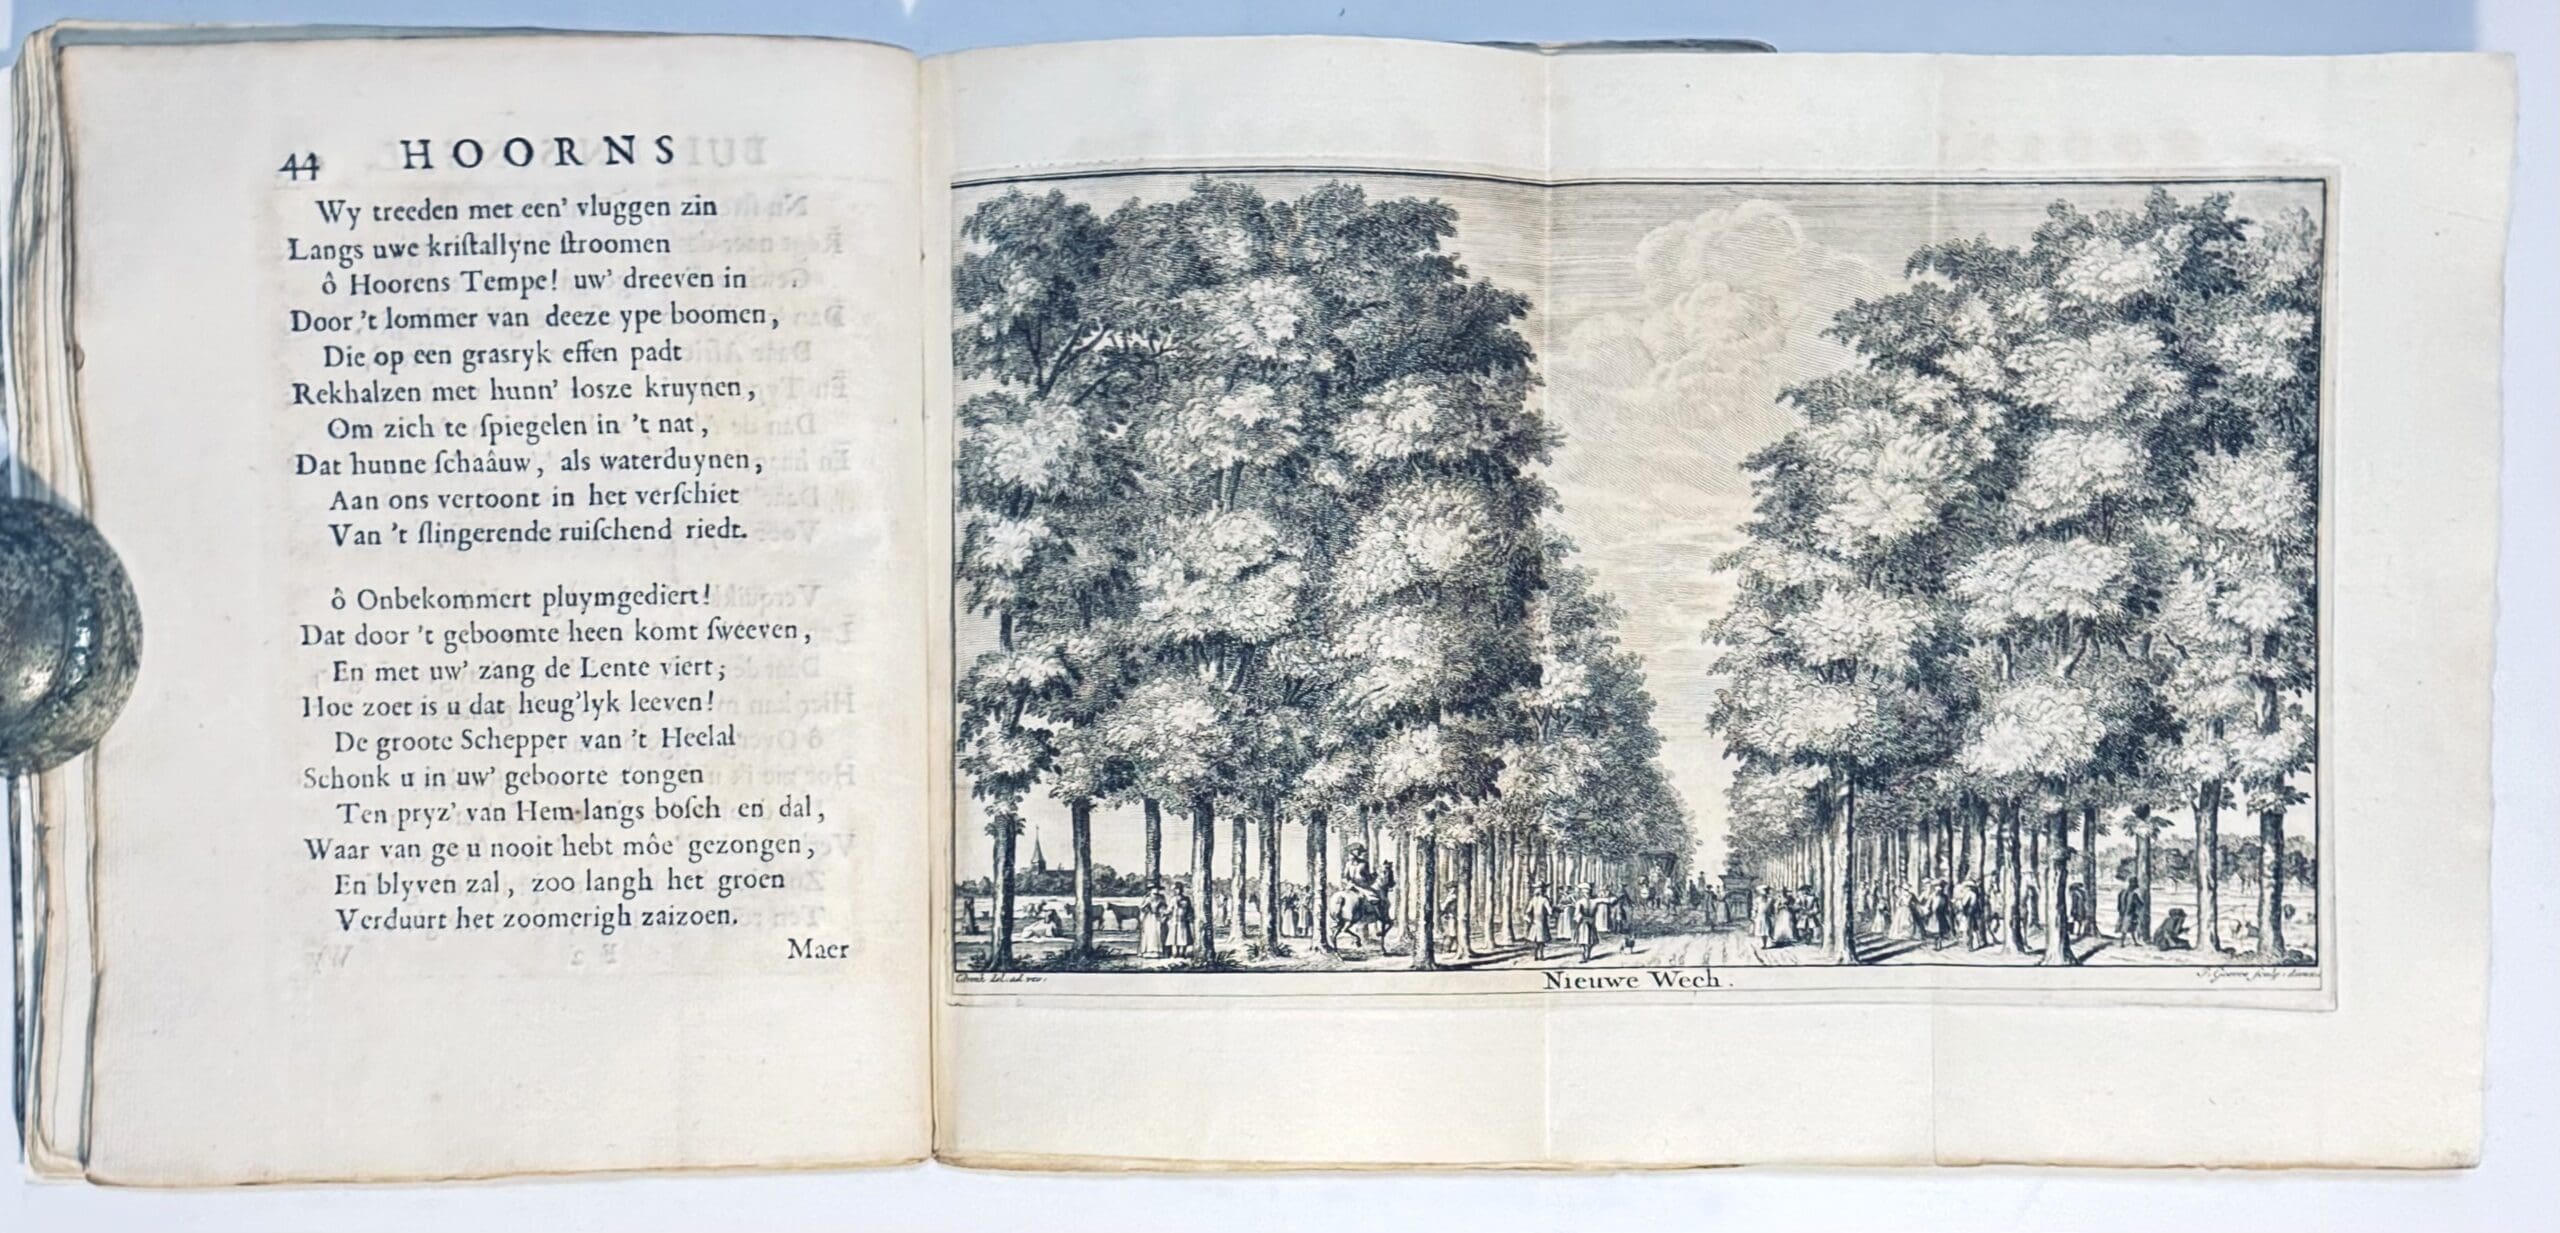 44 HOORNS
Wy treeden met een' vluggen zin
Langs uwe kriſtallyne ſtroomen
ô Hoorens Tempe! uw' dreeven in
Door 't lommer van deeze ype boomen,
Die op een grasryk effen padt
Rekhalzen met hunn' losze kruynen,
Om zich te ſpiegelen in 't nat,
Dat hunne ſchaâuw, als waterduynen,
Aan ons vertoont in het verſchiet
Van 't ſlingerende ruiſchend riedt.
ô Onbekommert pluymgediert!
Dat door 't geboomte heen komt ſweeven,
En met uw' zang de Lente viert;
Hoe zoet is u dat heug'lyk leeven!
De groote Schepper van 't Heelal
Schonk u in uw' geboorte tongen
Ten pryz' van Hem langs boſch en dal,
Waar van ge u nooit hebt môe gezongen,
En blyven zal, zoo langh het groen
Verduurt het zoomerigh zaizoen.
Maer
del. ad viv.
Nieuwe Wech.
J. Goeree ſculp. direx.